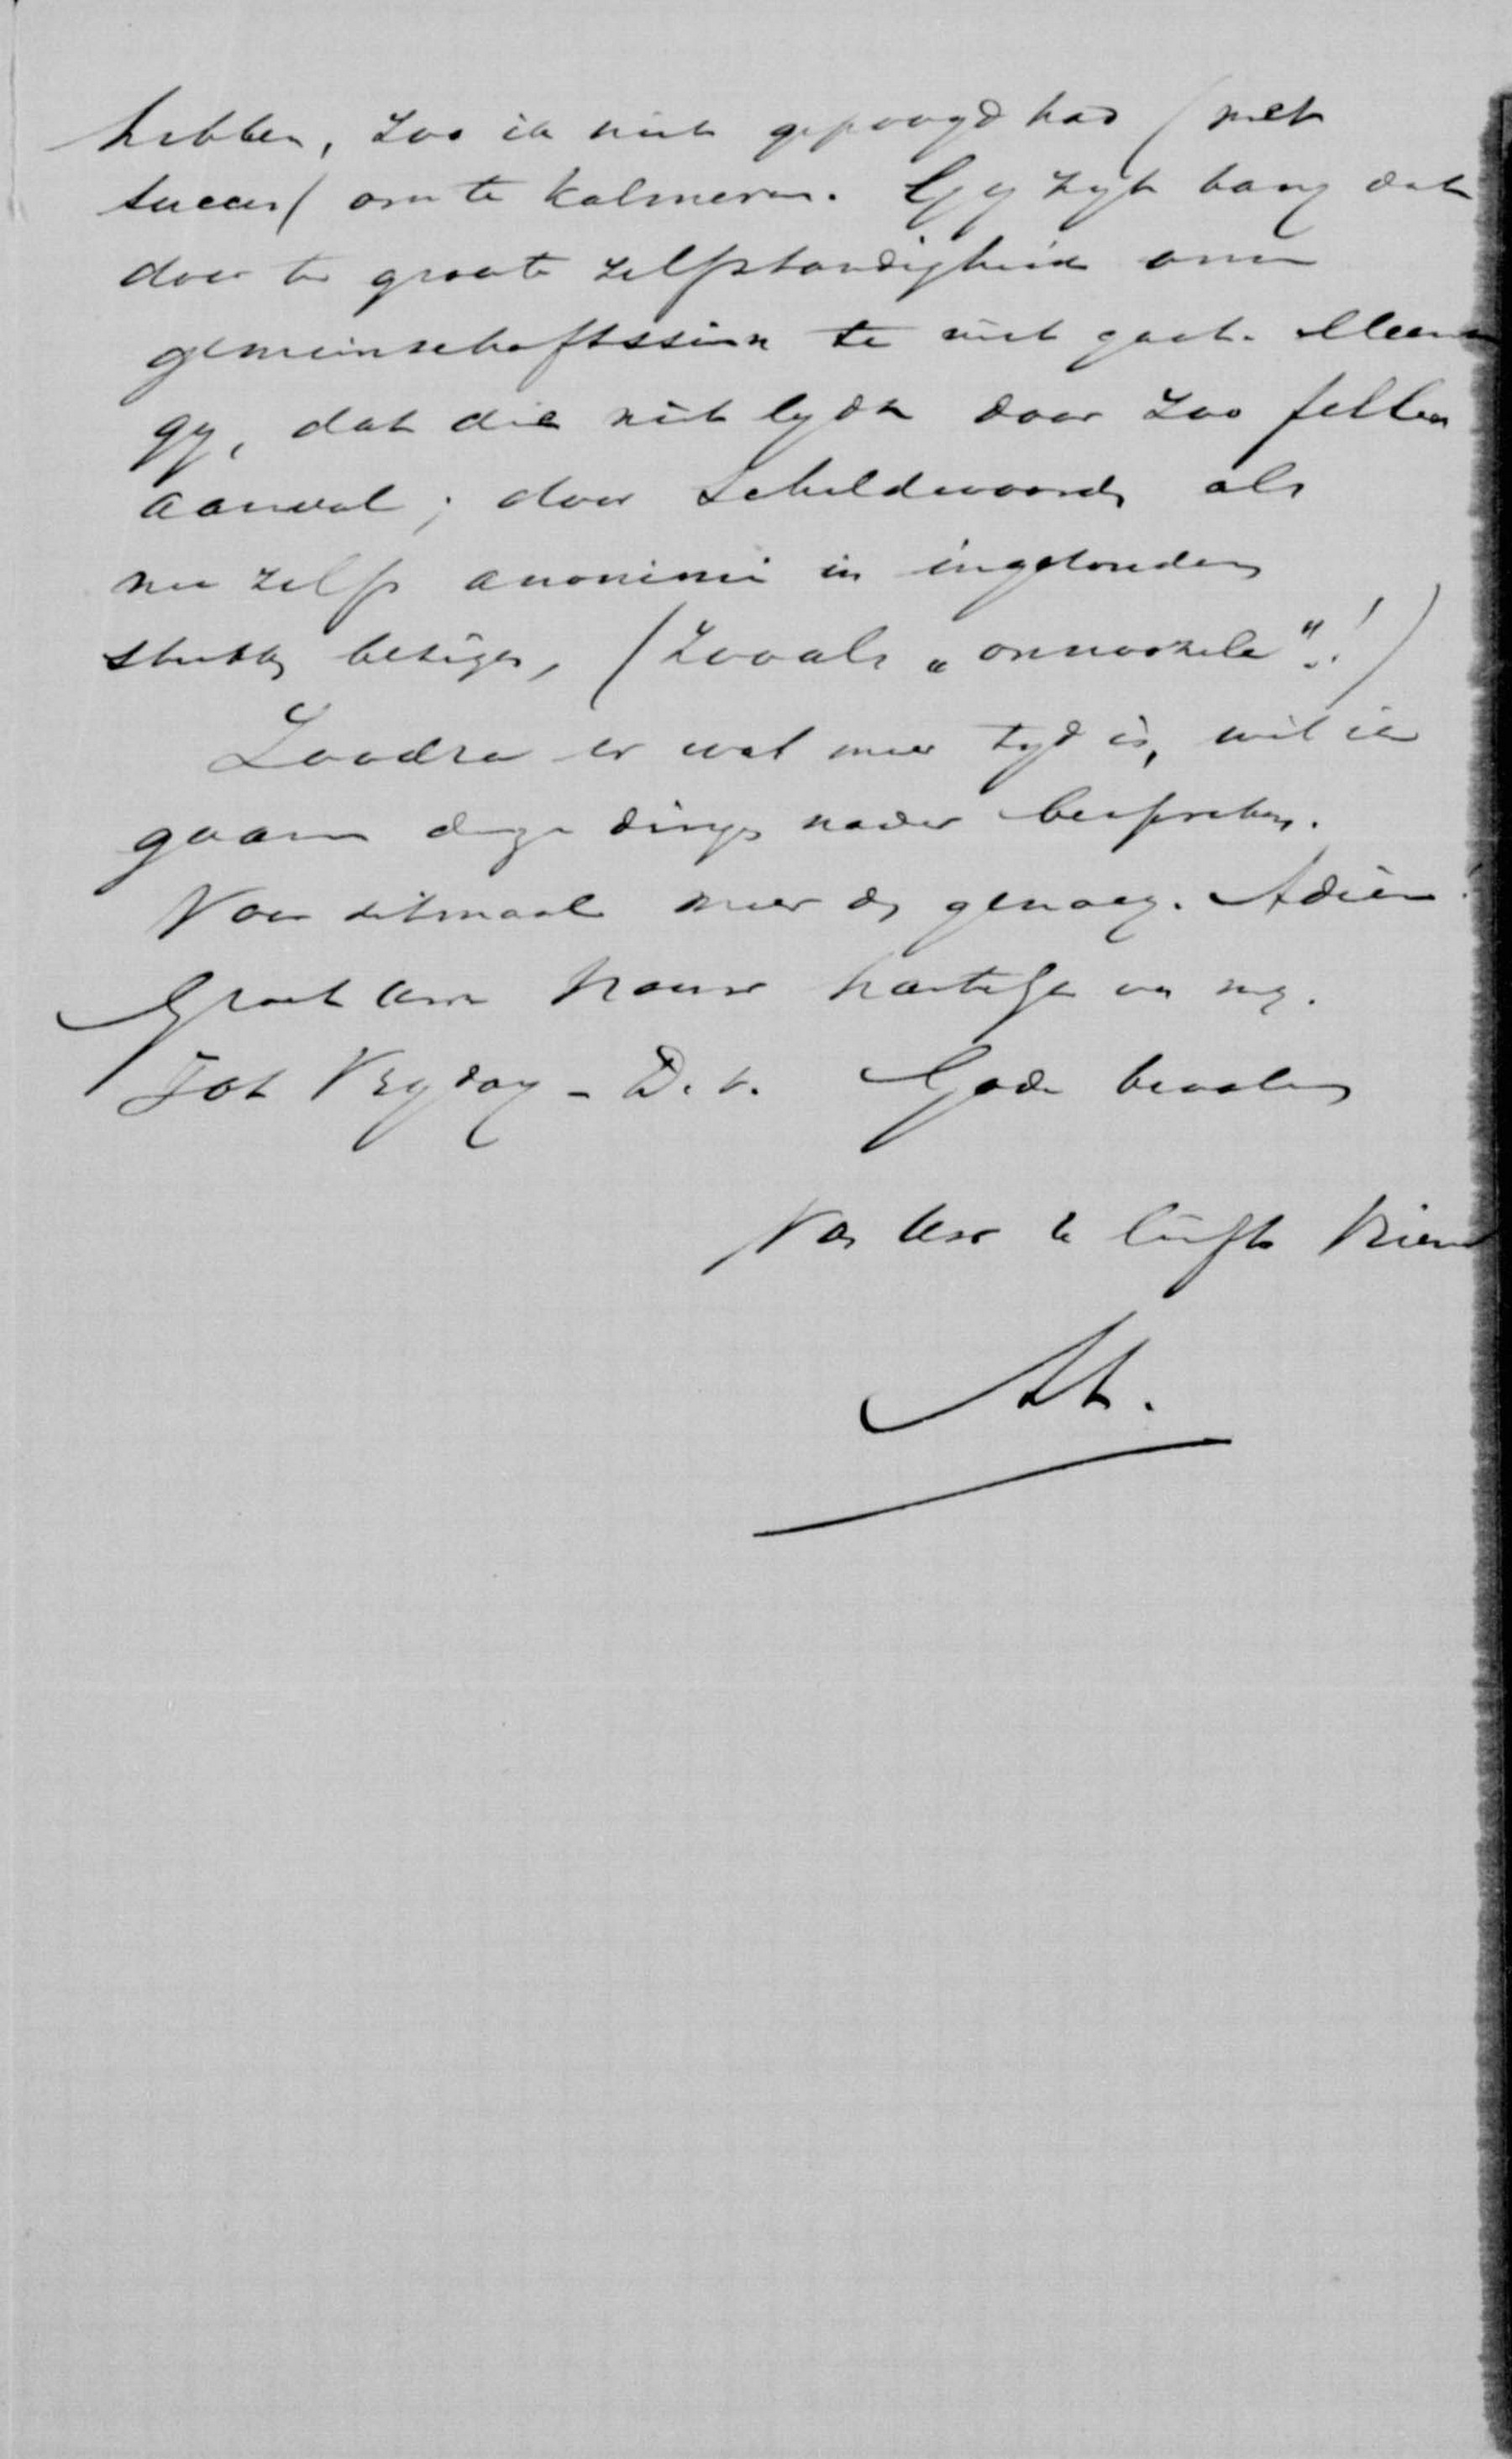 hebben, zoo ik niet gepoogd had (met
succes) om te kalmeren. Gy zyt bang dat
door te groote zelfstandigheid onze
gemeinschaftssinn te niet gaat. Meent
gy, dat die niet lydt door zoo fellen
aanval; door scheldwoorden als
nu zelfs anoniemi in ingezonden
stukken bezigen, (zooals „onnoozele”!)
Zoodra er wat meer tyd is, wil ik
gaarne deze dingen nader bespreken.
Voor ditmaal meer dan genoeg. Adieu!
Groet Uwe vrouw hartelyk van my.
Tot Vrydag - D.V. Gode bevolen
Van Uw liefh. Vriend